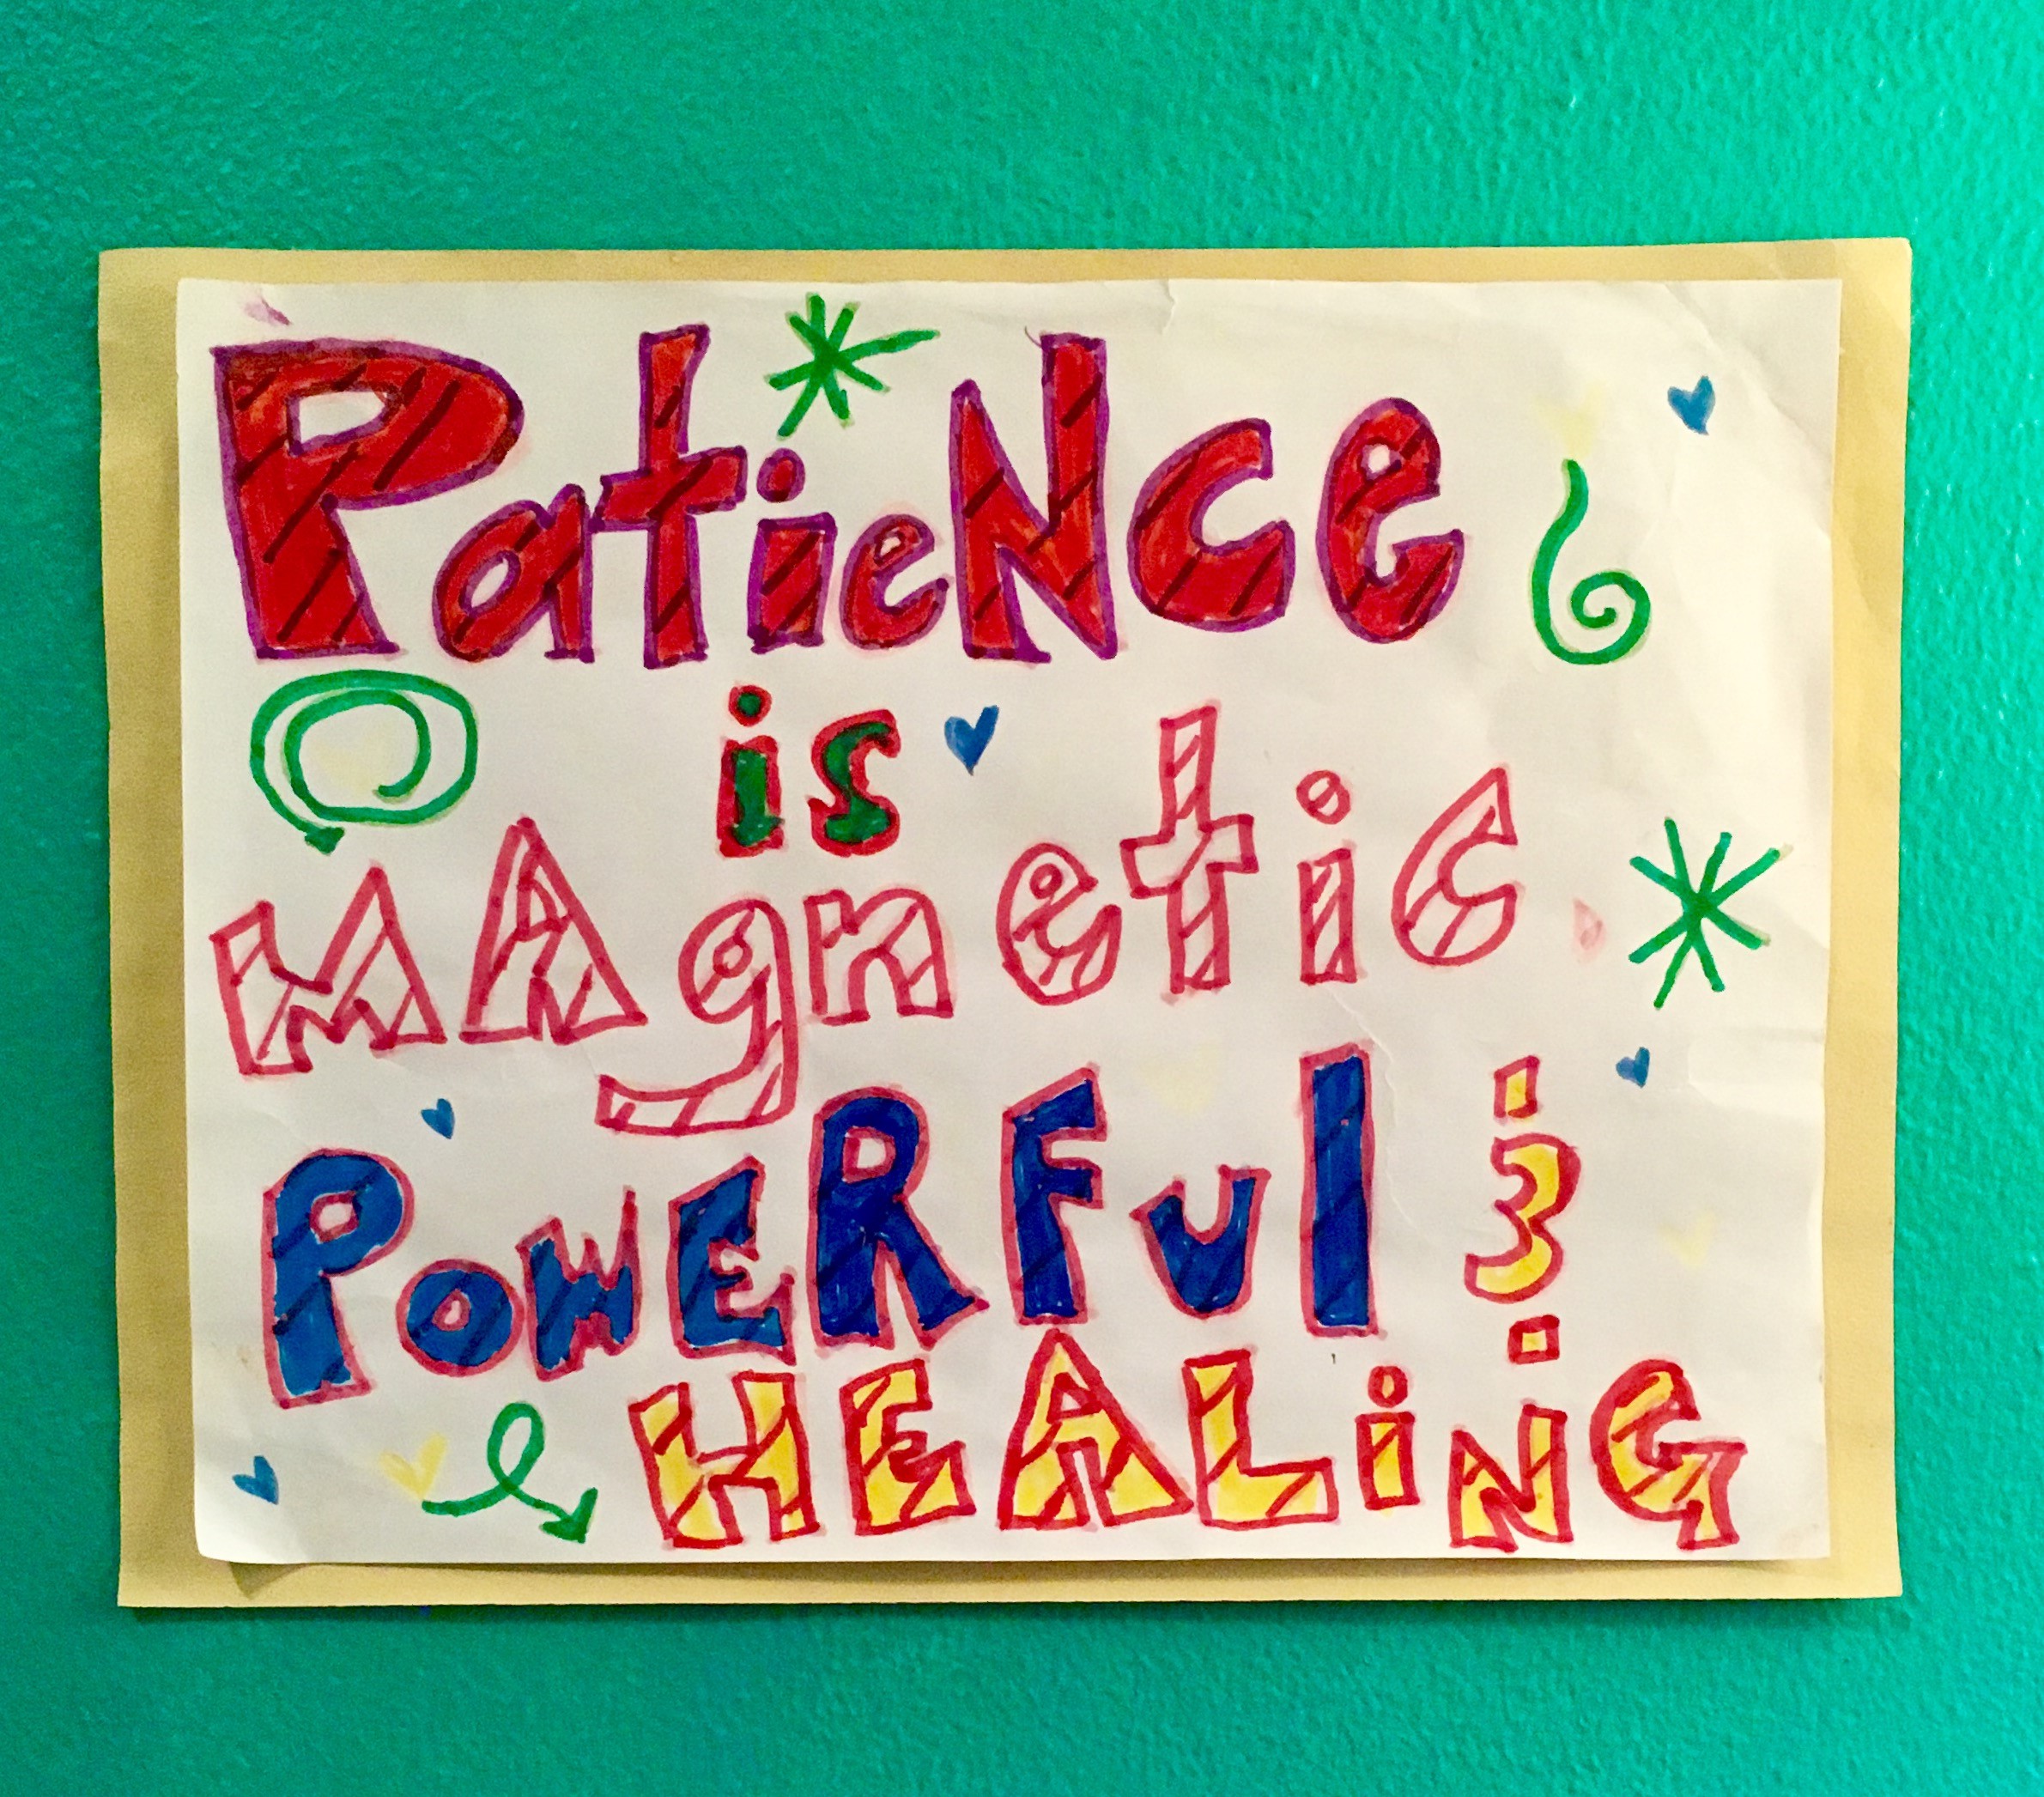 PatieNce
is
MAgnetic
PoWERFul &
HEALiNG